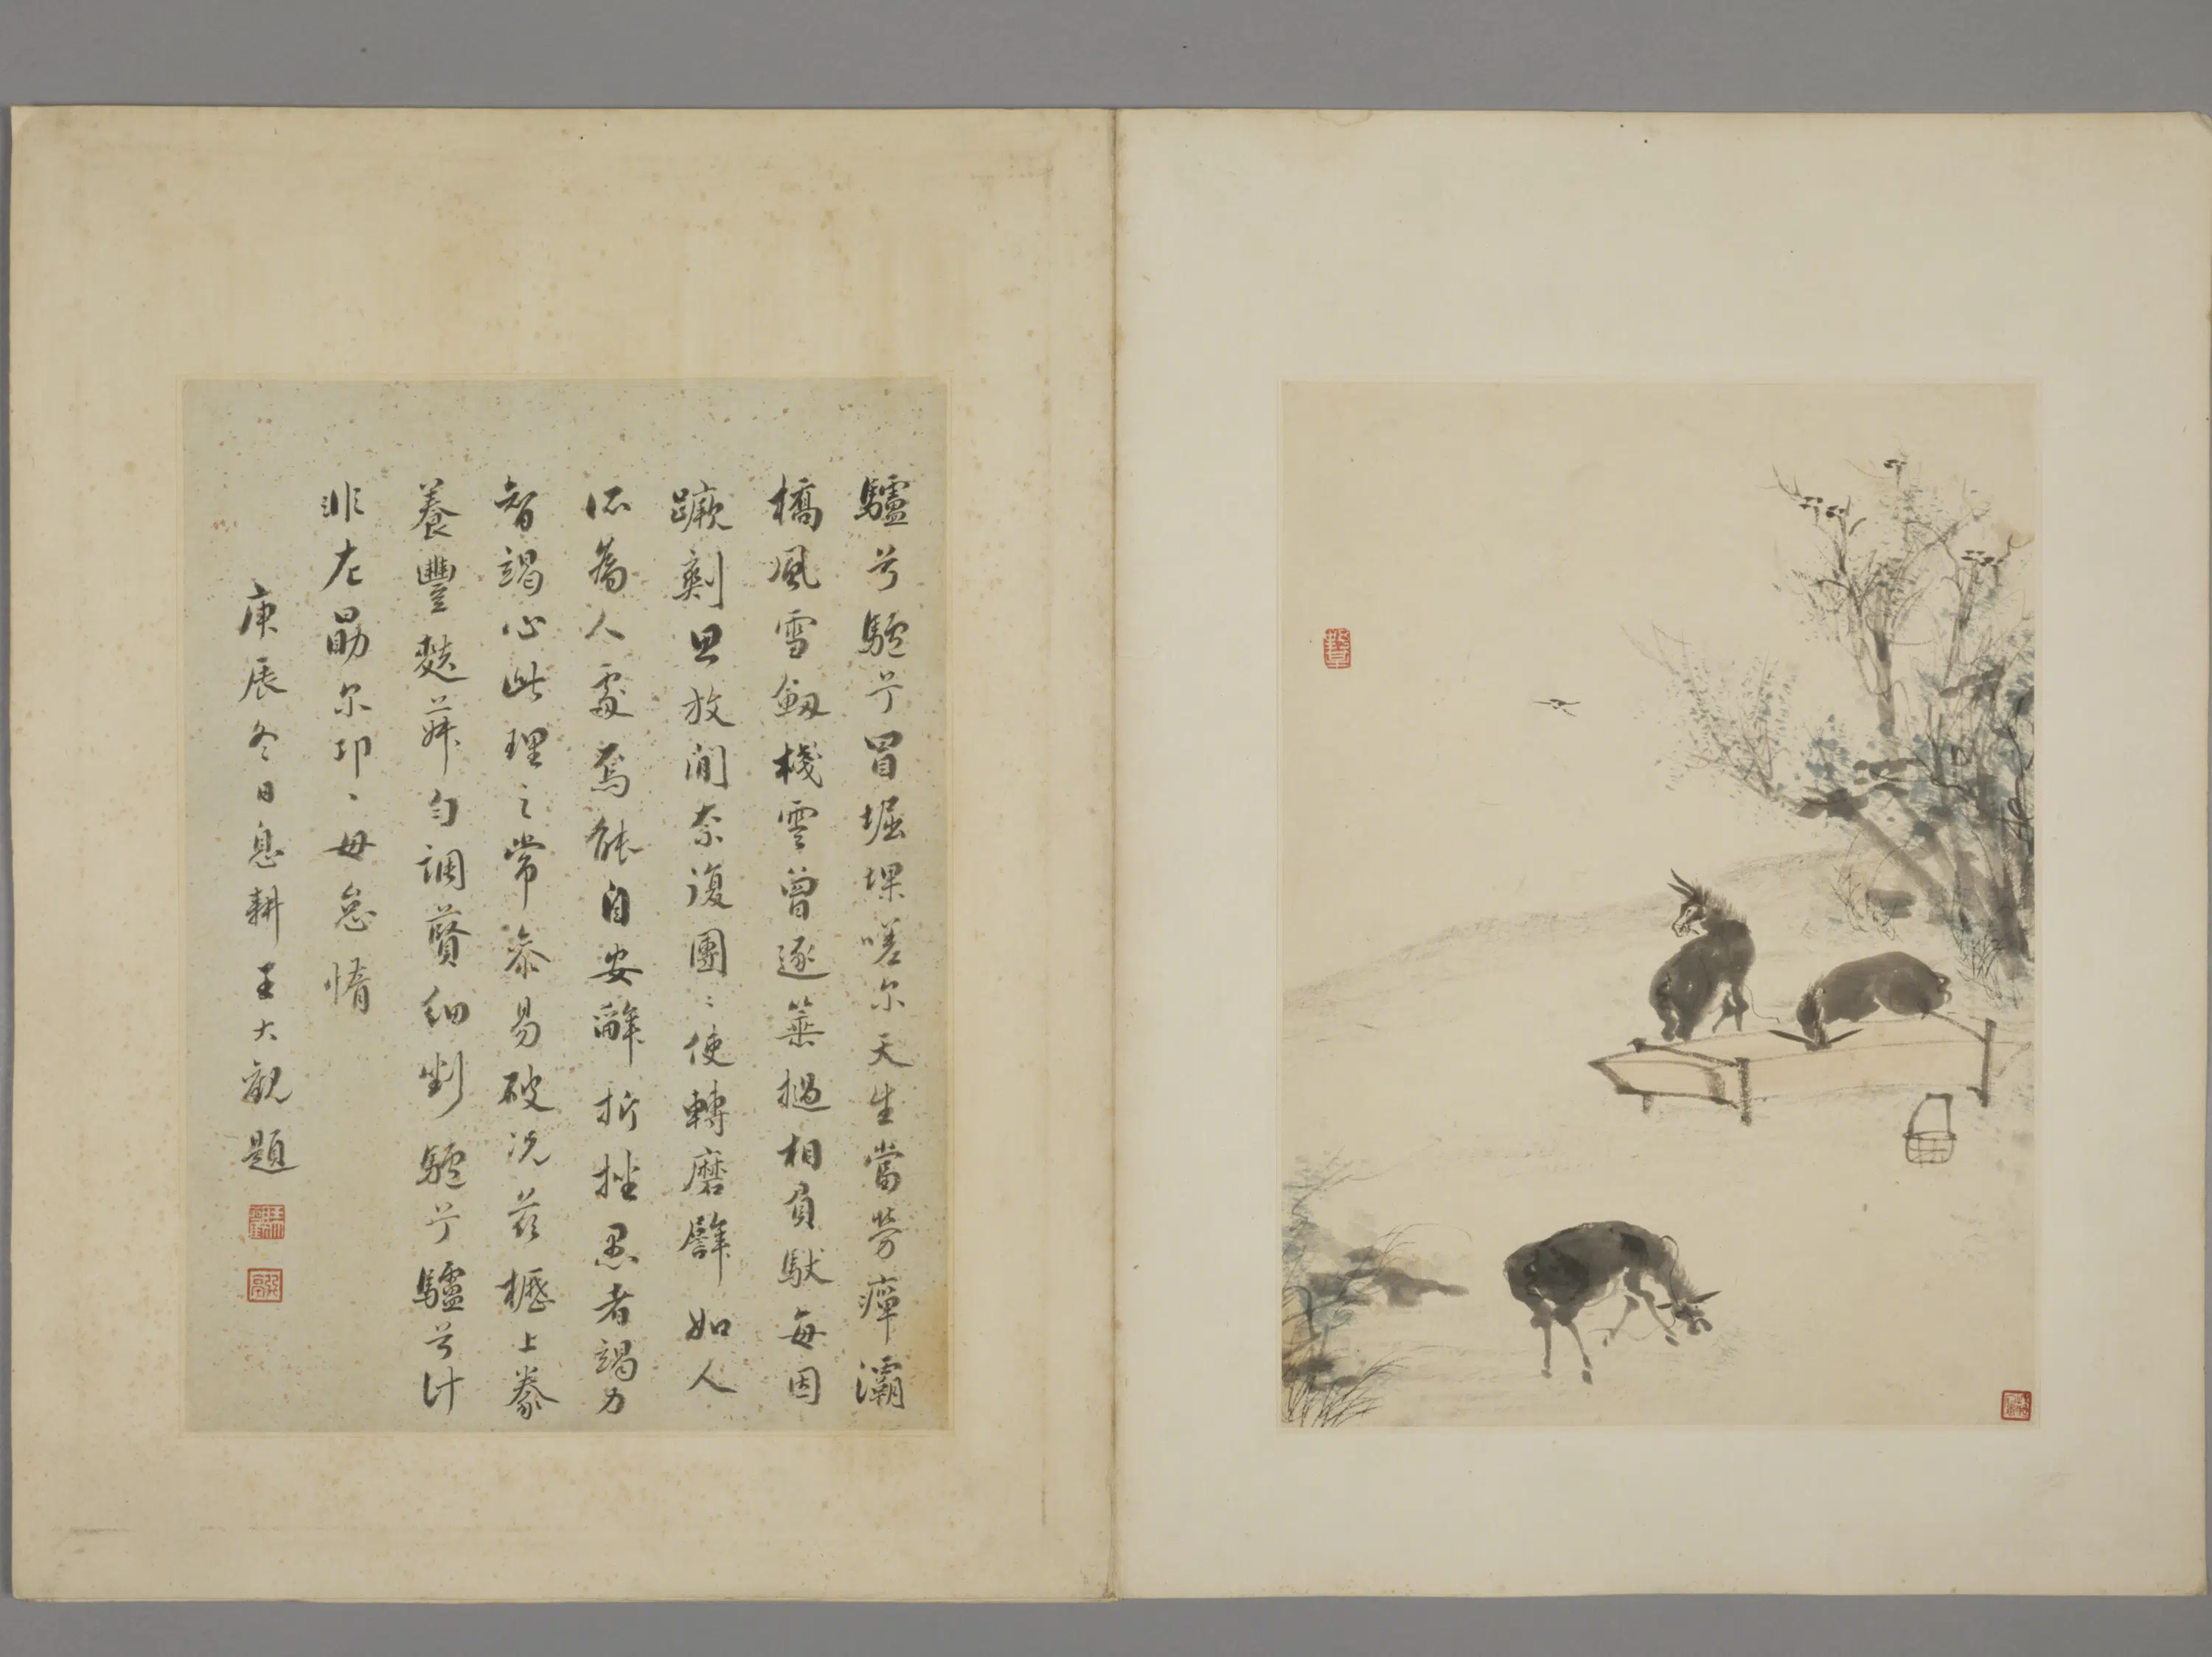 驢兮驢兮冒堀堁嗟尔天生當勞瘁灞
橋風雪劔棧雲曾逐箠撾相負馱每因
蹶劇思放閒奈復團〻使轉磨辟如人
爲人處焉能自安辭折挫愚者竭力
智竭心此理之常忝易破况茲櫪上豢
養豐麩勻調細剉驢兮驢兮计
非左勗尔邛〻毋怠惰
庚辰冬日息耕王大觀題